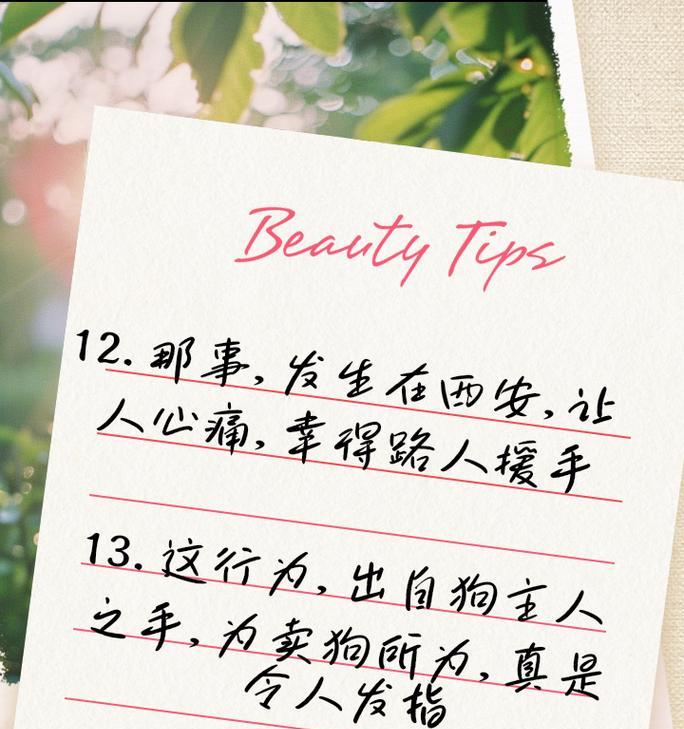 Beauty Tips
12. 那事,发生在西安,让
人心痛,幸得路人援手
13. 这行为,出自狗主人
之手,为卖狗所为,真是
令人发指